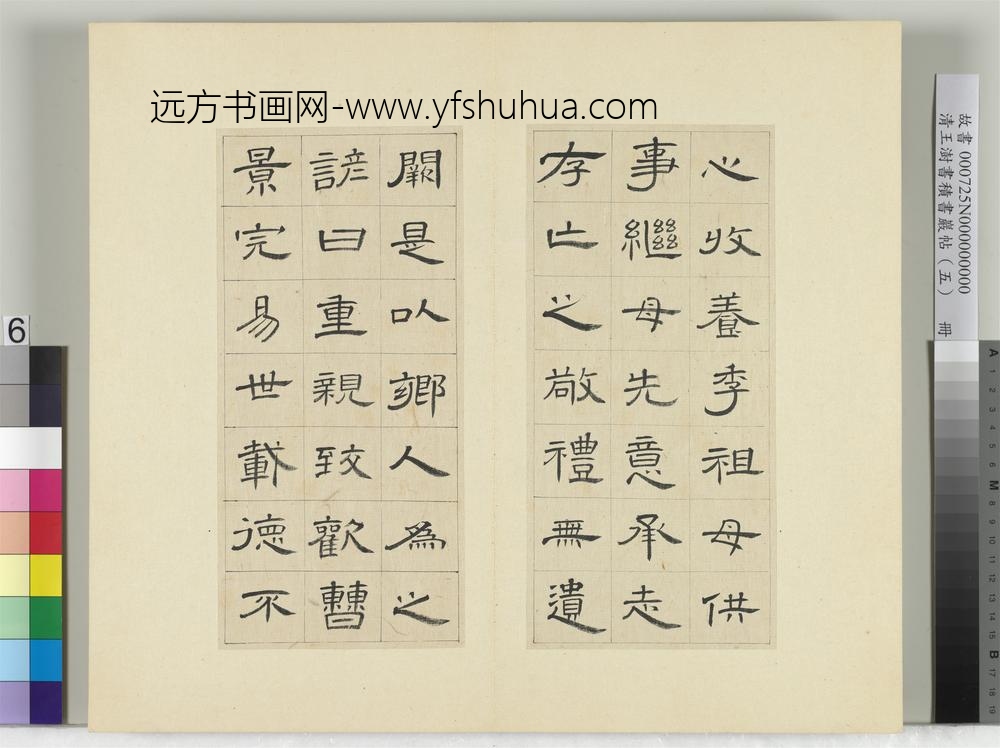 远方书画网-www.yfshuhua.com
心收養季祖母供
事繼母先意承志
存亡之敬禮無遺
闕是以鄉人為之
諺曰重親致歡曹
景完易世載德不
故書 000725N000000000
清王澍書積書巖帖（五） 冊
6
A 1 2 3 4 5 6 M 8 9 10 11 12 13 14 15 B 17 18 19